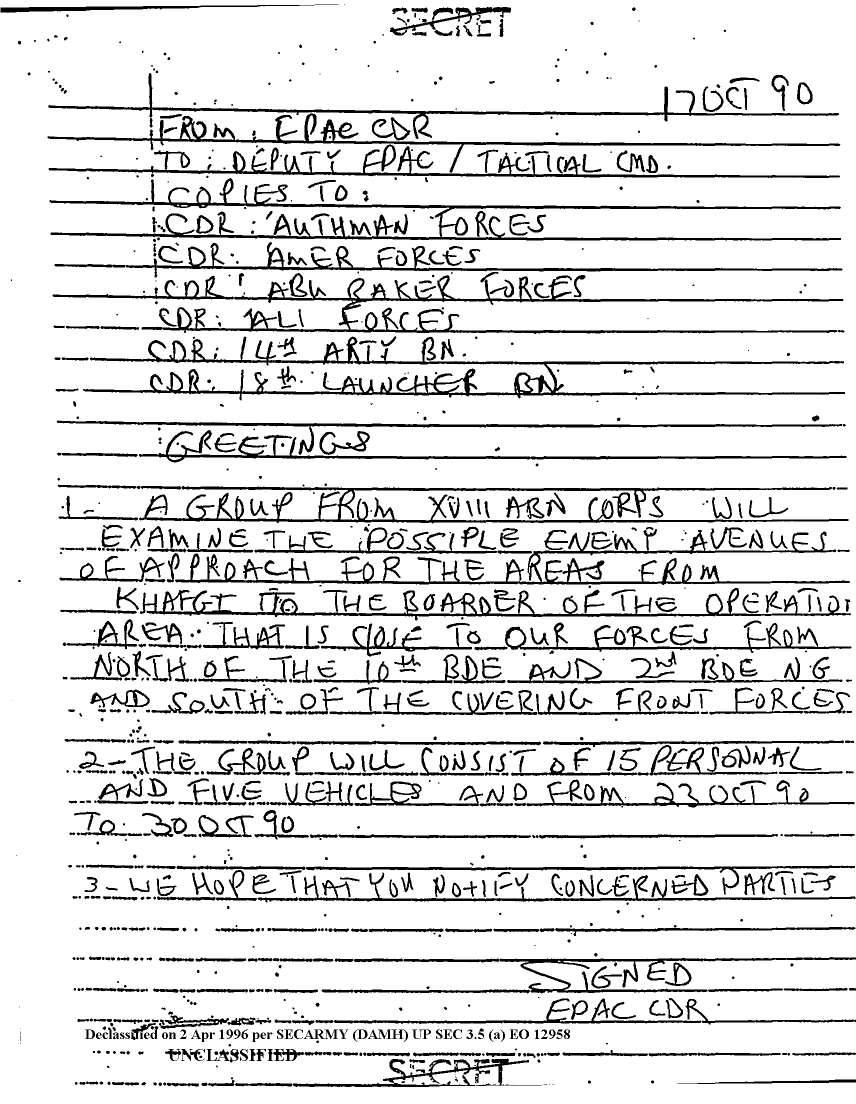 SECRET
17 OCT 90
FROM: EPAC CDR
TO: DEPUTY EPAC / TACTICAL CMD.
COPIES TO:
CDR: AUTHMAN FORCES
CDR: AMER FORCES
CDR: ABU BAKER FORCES
CDR: ALI FORCES
CDR: 14th ARTY BN.
CDR: 18th LAUNCHER BN
GREETINGS
1- A GROUP FROM XVIII ABN CORPS WILL
EXAMINE THE POSSIPLE ENEMY AVENUES
OF APPROACH FOR THE AREAS FROM
KHAFGI TO THE BOARDER OF THE OPERATIO
AREA. THAT IS CLOSE TO OUR FORCES FROM
NORTH OF THE 10th BDE AND 2nd BDE NG
AND SOUTH OF THE COVERING FRONT FORCES
2- THE GROUP WILL CONSIST OF 15 PERSONNAL
AND FIVE VEHICLES AND FROM 23 OCT 90
TO 30 OCT 90
3- WE HOPE THAT YOU NOTIFY CONCERNED PARTIES
SIGNED
EPAC CDR
Declassified on 2 Apr 1996 per SECARMY (DAMH) UP SEC 3.5 (a) EO 12958
UNCLASSIFIED
SECRET